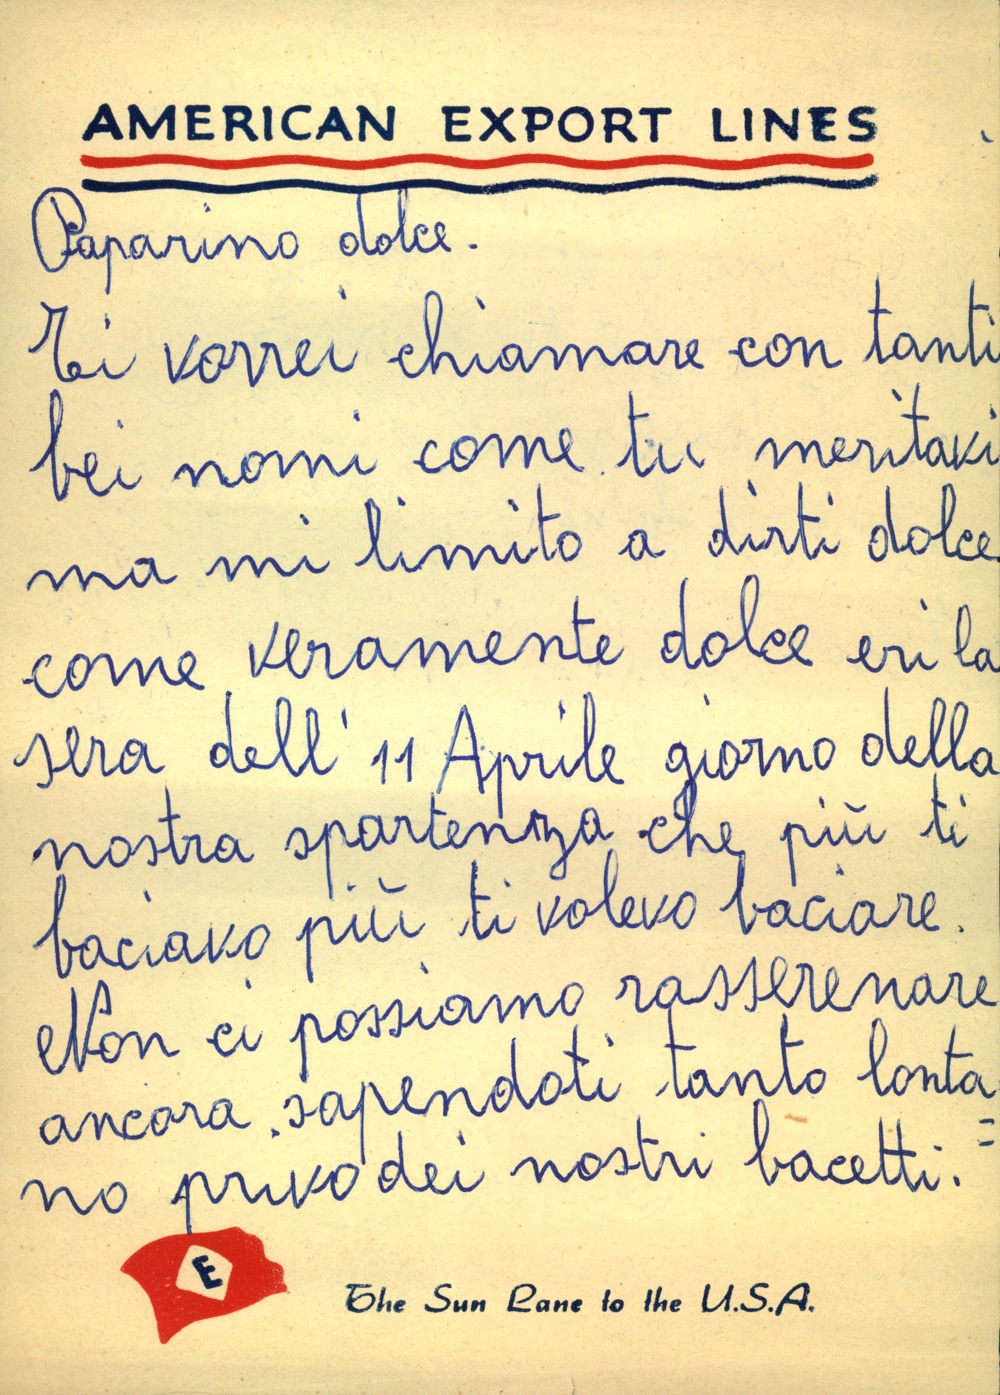 AMERICAN EXPORT LINES
Paparino dolce.
Ti vorrei chiamare con tanti
bei nomi come tu meritavi
ma mi limito a dirti dolce
come veramente dolce eri la
sera dell' 11 Aprile giorno della
nostra spartenza che più ti
baciavo più ti volevo baciare.
Non ci possiamo rasserenare
ancora sapendoti tanto lonta=
no privo dei nostri bacetti.
E
The Sun Lane to the U.S.A.